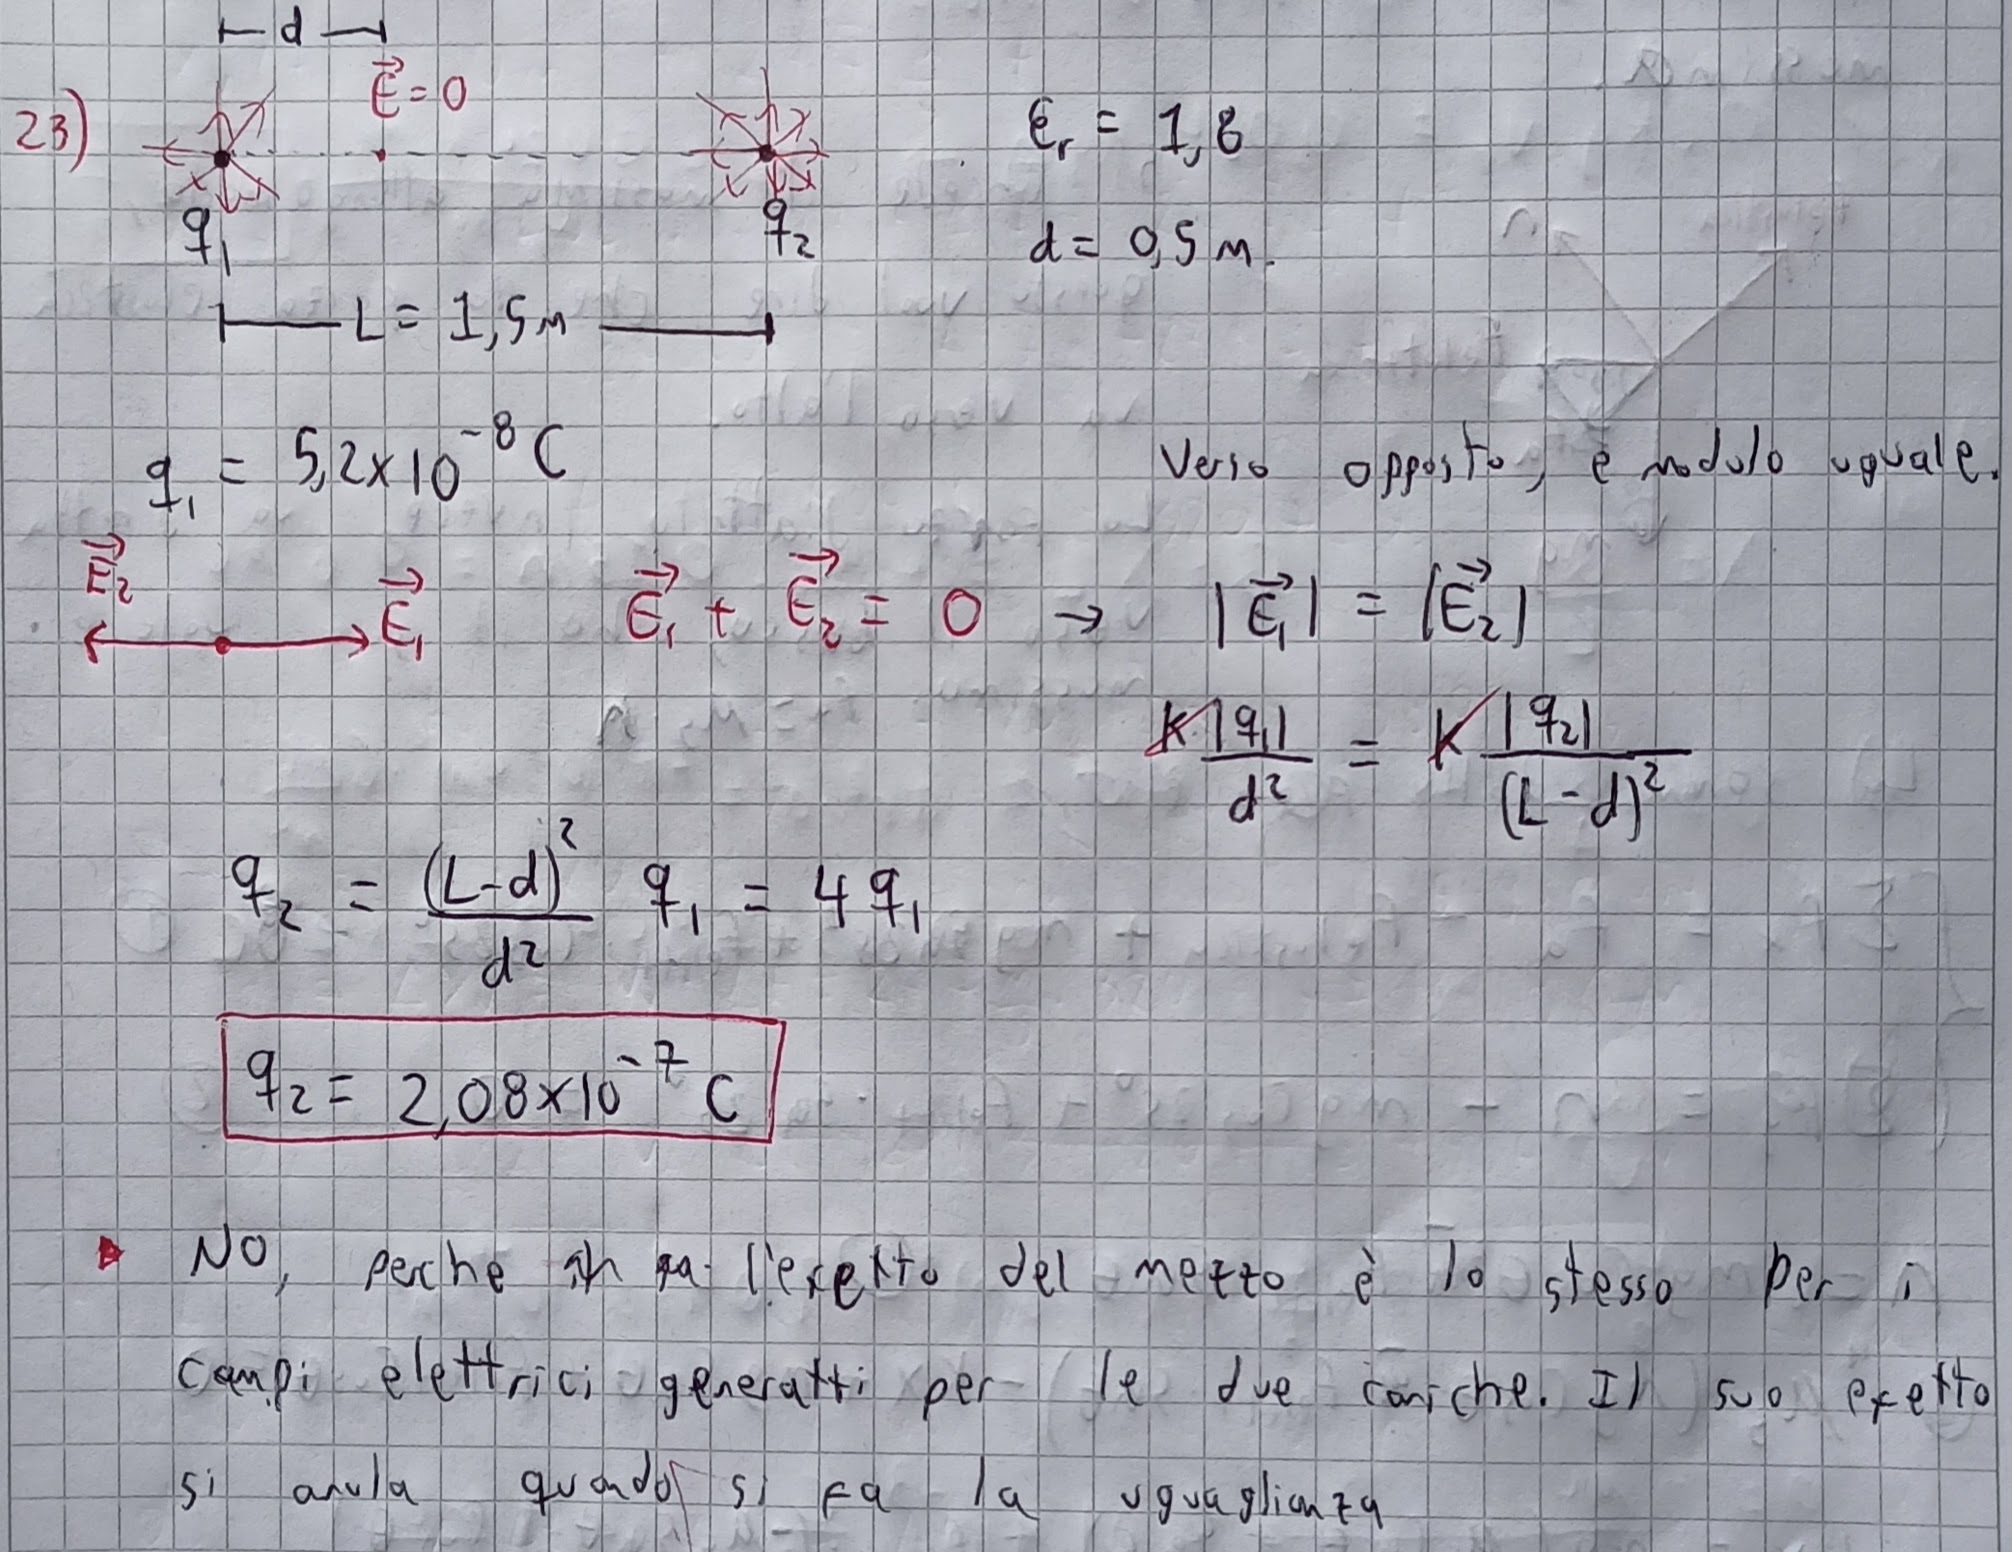 d
E⃗ = 0
23)
q₁
q₂
εᵣ = 1,8
d = 0,5 m.
L = 1,5m
q₁ = 5,2×10⁻⁸ C
Verso opposto, e modulo uguale.
E⃗₂
E⃗₁
E⃗₁ + E⃗₂ = 0 → |E⃗₁| = |E⃗₂|
K |q₁| / d² = K |q₂| / (L-d)²
q₂ = (L-d)² / d² q₁ = 4 q₁
q₂ = 2,08×10⁻⁷ C
NO, perche l'efetto del mezzo è lo stesso per i
campi elettrici generatti per le due cariche. Il suo efetto
si anula quando si fa la uguaglianza